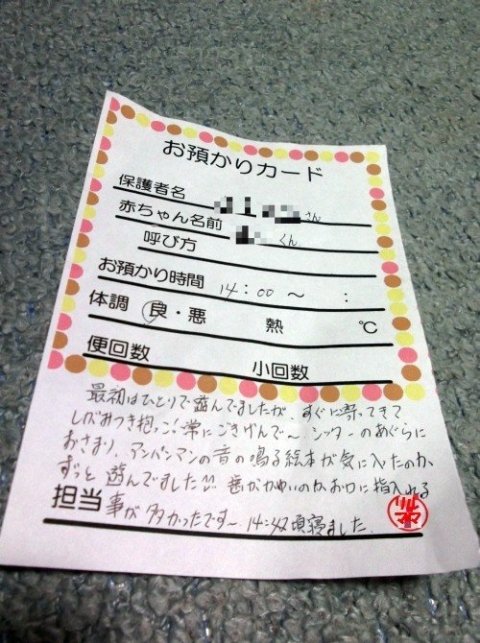 お預かりカード
保護者名 さん
赤ちゃん名前 くん
呼び方
お預かり時間 14:00 〜 :
体調 良・悪 熱 ℃
便回数 小回数
最初はひとりで遊んでましたが、すぐに寄ってきて
しがみつき抱っこ!常にごきげんで〜 シッターのあぐらに
おさまり、アンパンマンの音の鳴る絵本が気に入たのか、
ずっと遊んでました!! 歯がかゆいのかお口に指入れる
担当 事が多かったです〜 14:42頃寝ました